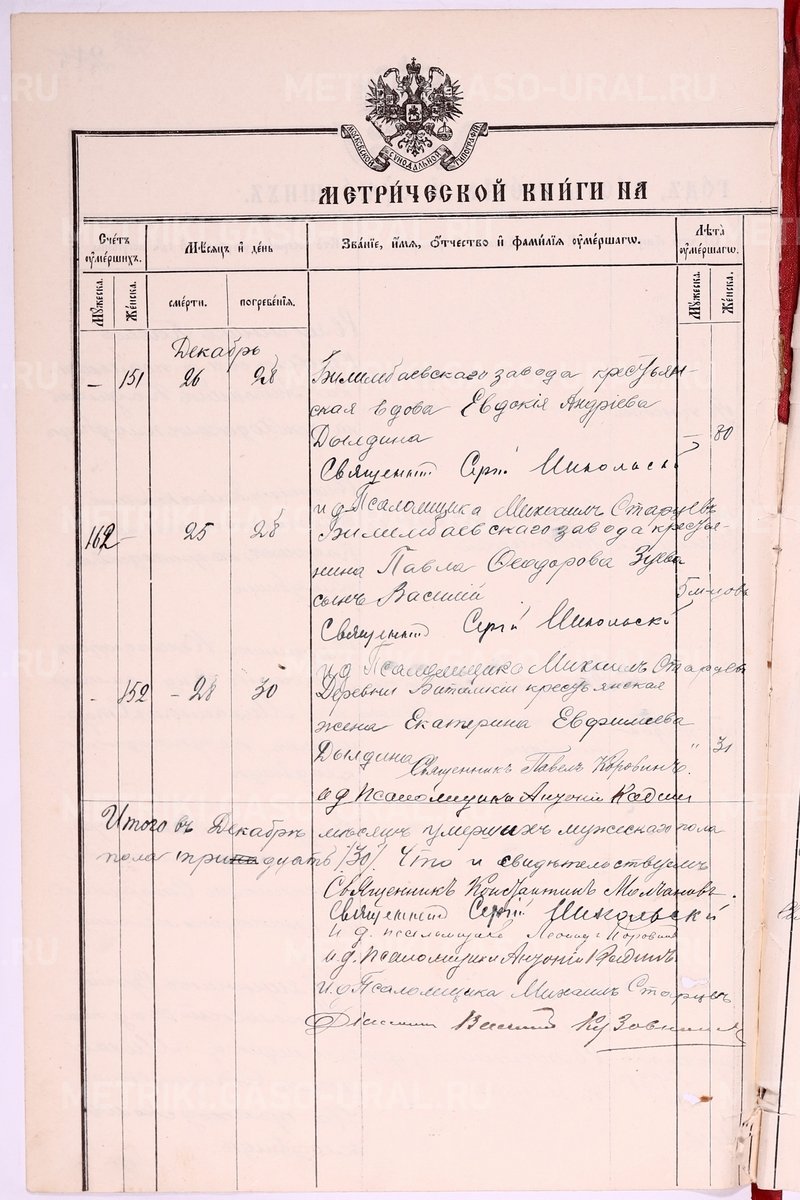 МОСКОВСКОЙ СѴНОДАЛЬНОЙ ТИПОГРАФІИ
МЕТРИ́ЧЕСКОЙ КНИ́ГИ НА
Счетъ ᲂумершихъ.
Мѣсяцъ и день
Званіе, имя, ѻтчество и фамилія ᲂумершагѡ.
Лѣта ᲂумершагѡ.
Мужеска.
Женска.
смерти.
погребенія.
Мужеска.
Женска.
Декабрь
— 151 26 28 Билимбаевскаго завода крестьян-
ская вдова Евдокія Андріева
Дылдина — 80
Священник Сергій Никольскій
и д Псаломщика Михаилъ Старцевъ
162 — 25 28 Билимбаевскаго завода кресть-
нина Павла Ѳеодорова Зуева
сынъ Василій 5 м-цовъ
Священник Сергій Никольскій
и д Псаломщика Михаилъ Старцевъ
- 152 - 28 30 Деревни крестьянская
жена Екатерина Евфимиева
Дылдина " 31
Священникъ Павелъ Коровинъ.
и д Псаломщика Антоній
Итого въ Декабрѣ мѣсяцѣ умершихъ мужескаго пола
пола тринадцать /30/. Что и свидѣтельствуемъ
Священникъ Константинъ Молчановъ.
Священник Сергій Никольскій
и д. псаломщика Леонид Коровинъ
и д. Псаломщика Антоній
и. д Псаломщика Михаилъ Старцевъ
Василий
METRIKI.GASO-URAL.RU